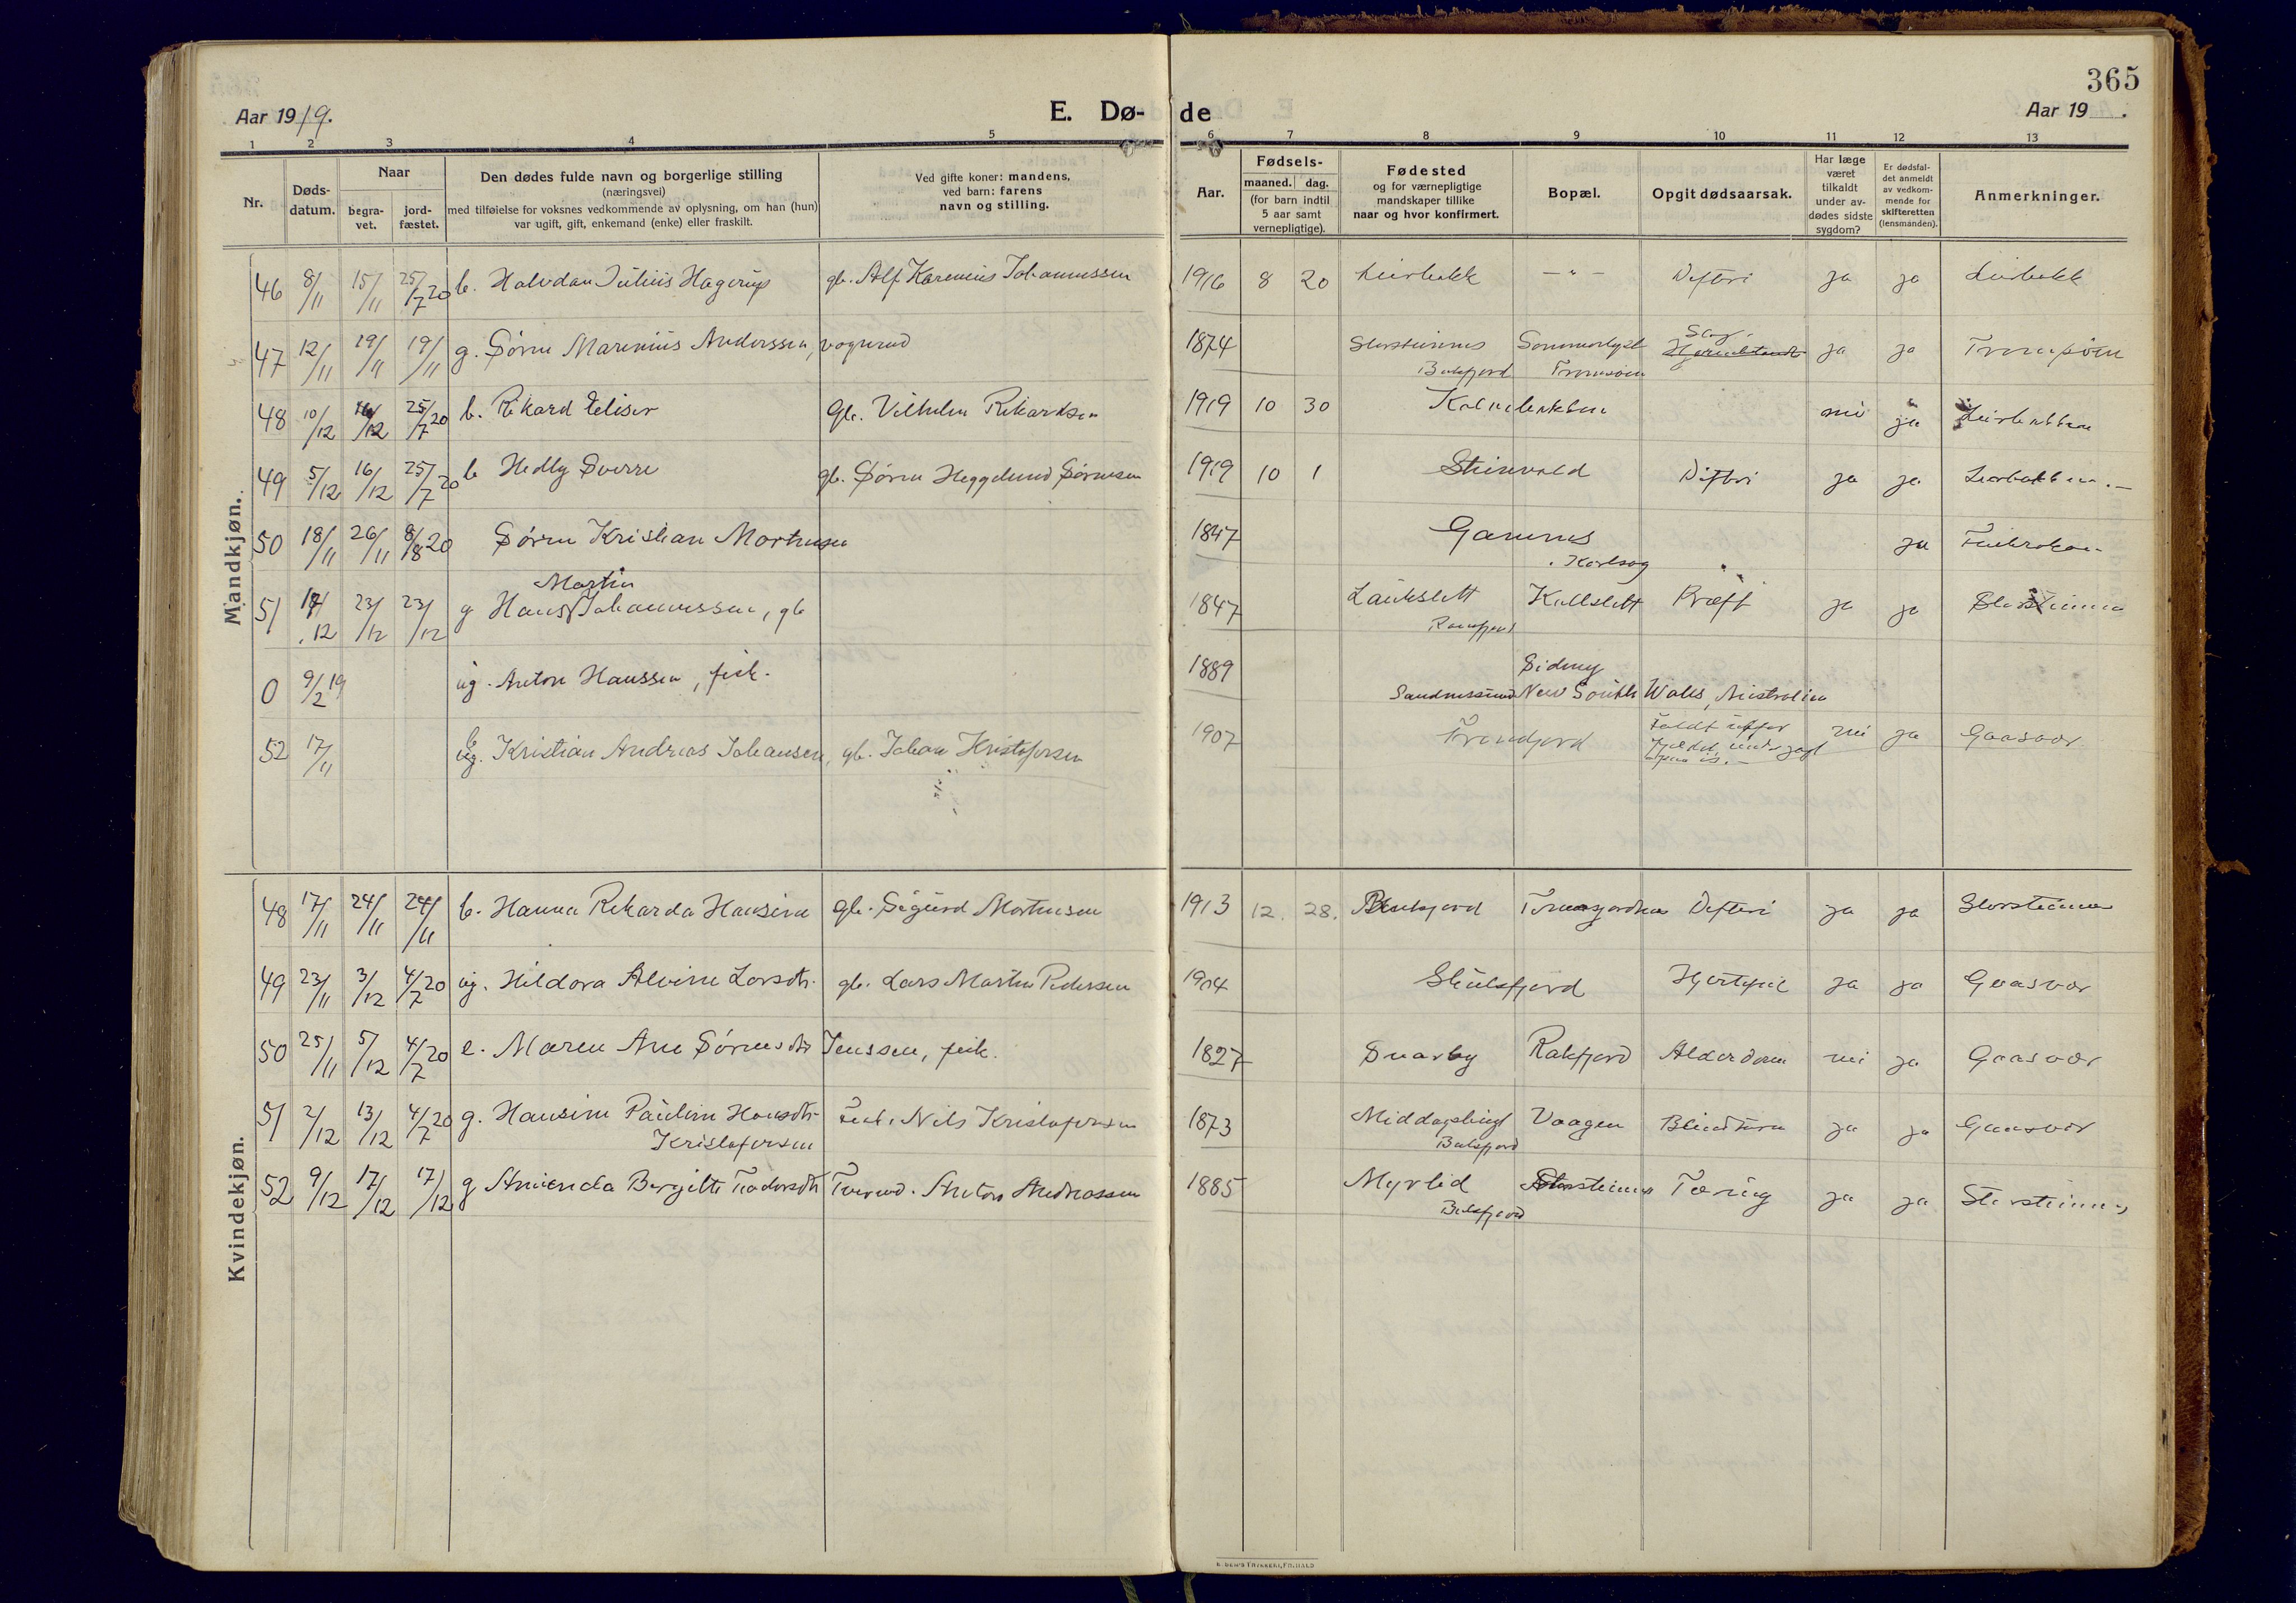 365
Aar 1919. E. Dø- de Aar 19 .
1 2 3 4 5 6 7 8 9 10 11 12 13
Nr.
Døds-
datum.
Naar
begra-
vet.
jord-
fæstet.
Den dødes fulde navn og borgerlige stilling
(næringsvei)
med tilføielse for voksnes vedkommende av oplysning, om han (hun)
var ugift, gift, enkemand (enke) eller fraskilt.
Ved gifte koner: mandens,
ved barn: farens
navn og stilling.
Aar.
Fødsels-
maaned. dag.
(for barn indtil
5 aar samt
vernepligtige).
Fødested
og for værnepligtige
mandskaper tillike
naar og hvor konfirmert.
Bopæl.
Opgit dødsaarsak.
Har læge
været
tilkaldt
under av-
dødes sidste
sygdom?
Er dødsfal-
det anmeldt
av vedkom-
mende for
skifteretten
(lensmanden).
Anmerkninger.
Mandkjøn.
46 8/11 15/11 25/7 20 b. Halvdan Julius Hagerup gb. Alf Karenius Johannessen 1916 8 20 Leirbakk — " — Difteri ja ja Leirbakk
47 12/11 19/11 19/11 g. Søren Marenius Anderssen, vognmd 1874 Storsteinnes Sommerlyst Slag ja ja Tromsøen
Balsfjord Tromsøen
48 10/12 16/12 25/7 20 b. Rikard Eliser Gb. Vilhelm Rikardsen 1919 10 30 nei ja Leirbakken
49 5/12 16/12 25/7 20 b Hedly Sverre gb. Søren Heggelund Sørensen 1919 10 1 Steinvold Difteri ja ja Leirbakken.—
50 18/11 26/11 8/8 20 Søren Kristian Mortensen 1847 Gamnes ja
Karlsøy
Martin
51 17/12 23/12 23/12 g Hans Johannessen, gb 1847 Laukslett Kullslett Kræft ja ja Storsteinnes
Ramfjord
0 9/2 19 ug. Anton Hanssen, fisk. 1889 Sidney
Sandnessund New South Wales, Australien
52 17/11 ug. Kristian Andreas Johansen, gb. Johan Kristofersen 1907 nei ja Gaasvær
Kvindekjøn.
48 17/11 24/11 24/11 b. Hanna Rikarda Hansine gb. Sigurd Mortensen 1913 12. 28. Difteri ja ja Storsteinnes
49 23/11 3/12 4/7 20 ug. Hildora Alvine Larsdtr. gb. Lars Martin Pedersen 1904 Skulsfjord Hjertefeil ja ja Gaasvær
50 25/11 5/12 4/7 20 e. Maren Ane Sørensdtr Jenssen, fisk. 1827 Snarby Rakfjord Alderdom nei ja Gaasvær
51 2/12 13/12 4/7 20 g. Hansine Pauline Hansdtr. Nils Kristofersen 1873 Middagsbugt Vaagen Blindtarm ja ja Gaasvær
Kristofersen Balsfjord
52 9/12 17/12 17/12 g Amienda Bergitte Teodorsdtr Tømmd. Anton Andreassen 1885 Myrlid Storsteinnes Tæring ja ja Storsteinnes
Balsfjord